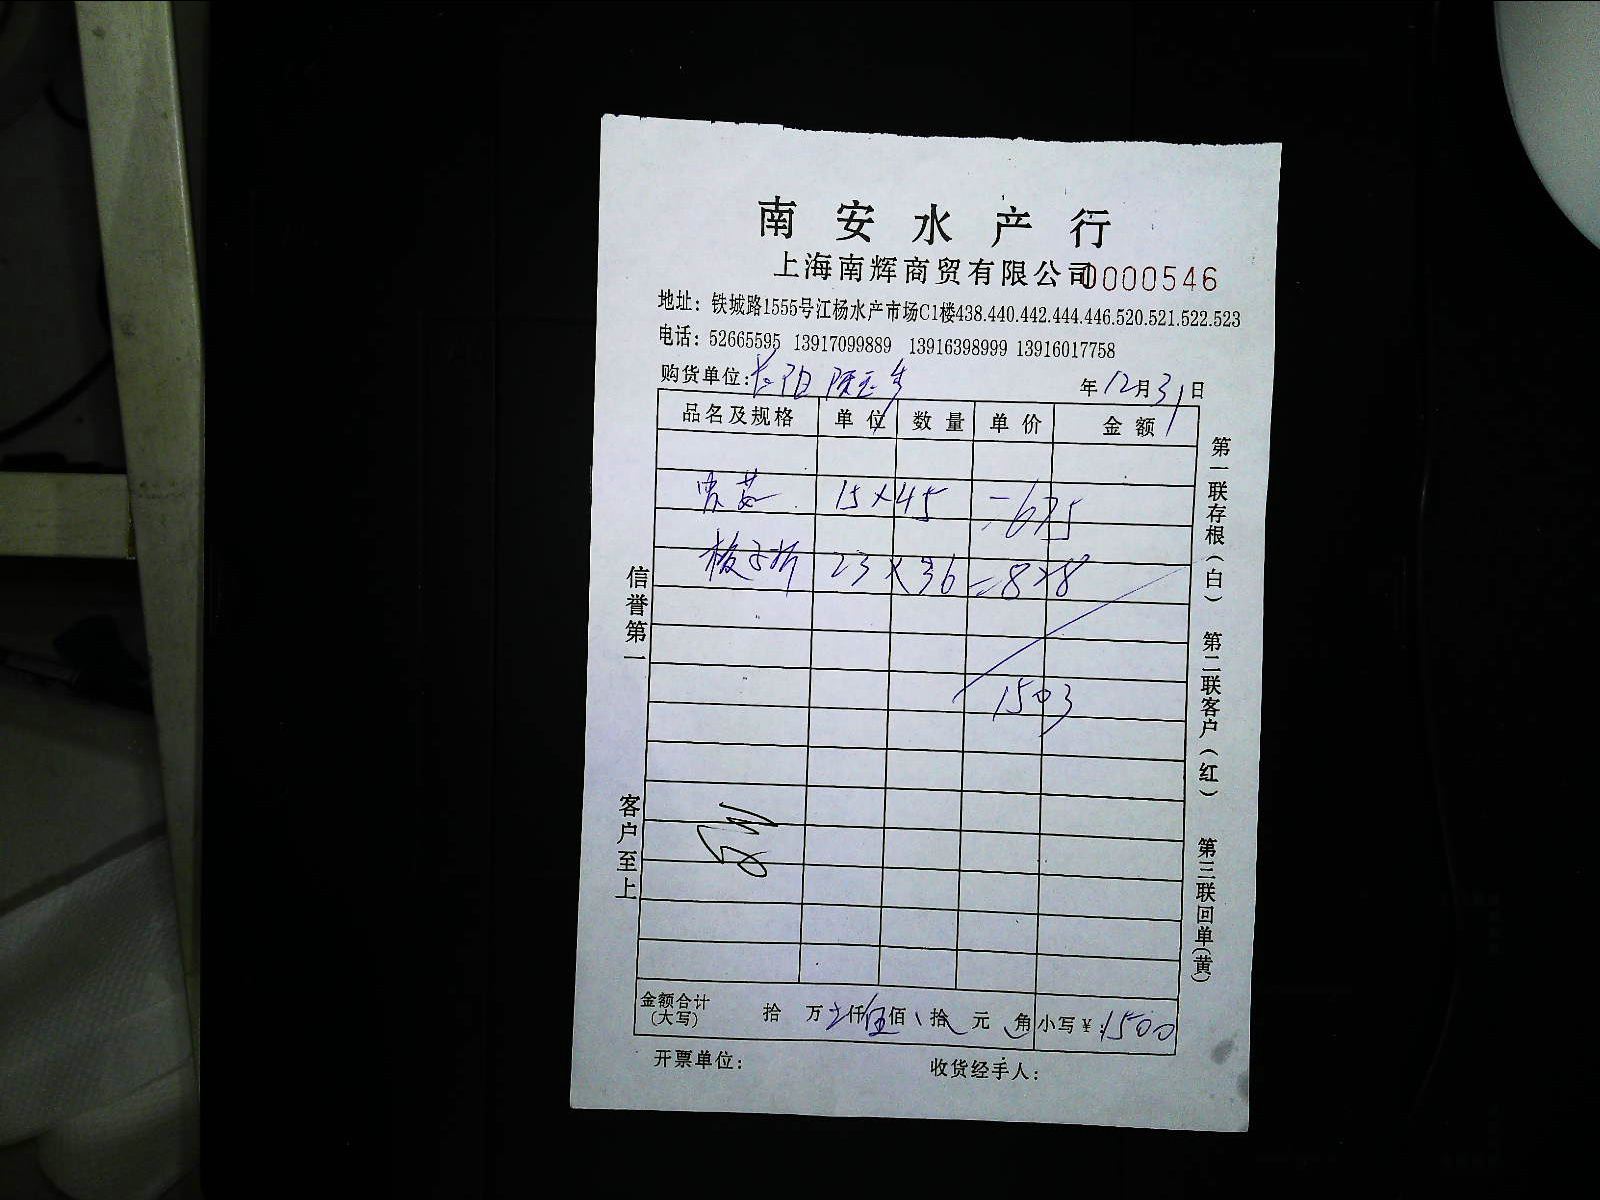 南安水产行
上海南辉商贸有限公司 0000546
地址：铁城路1555号江杨水产市场C1楼438.440.442.444.446.520.521.522.523
电话：52665595 13917099889 13916398999 13916017758
购货单位：长阳 年12月31日
品名及规格 单位 数量 单价 金额
15×45 =675
板子 23×36 =828
1503
金额合计（大写） 拾 万 仟伍佰 拾 元 角 小写￥：1500
开票单位： 收货经手人：
信誉第一
客户至上
第一联存根（白） 第二联客户（红） 第三联回单（黄）